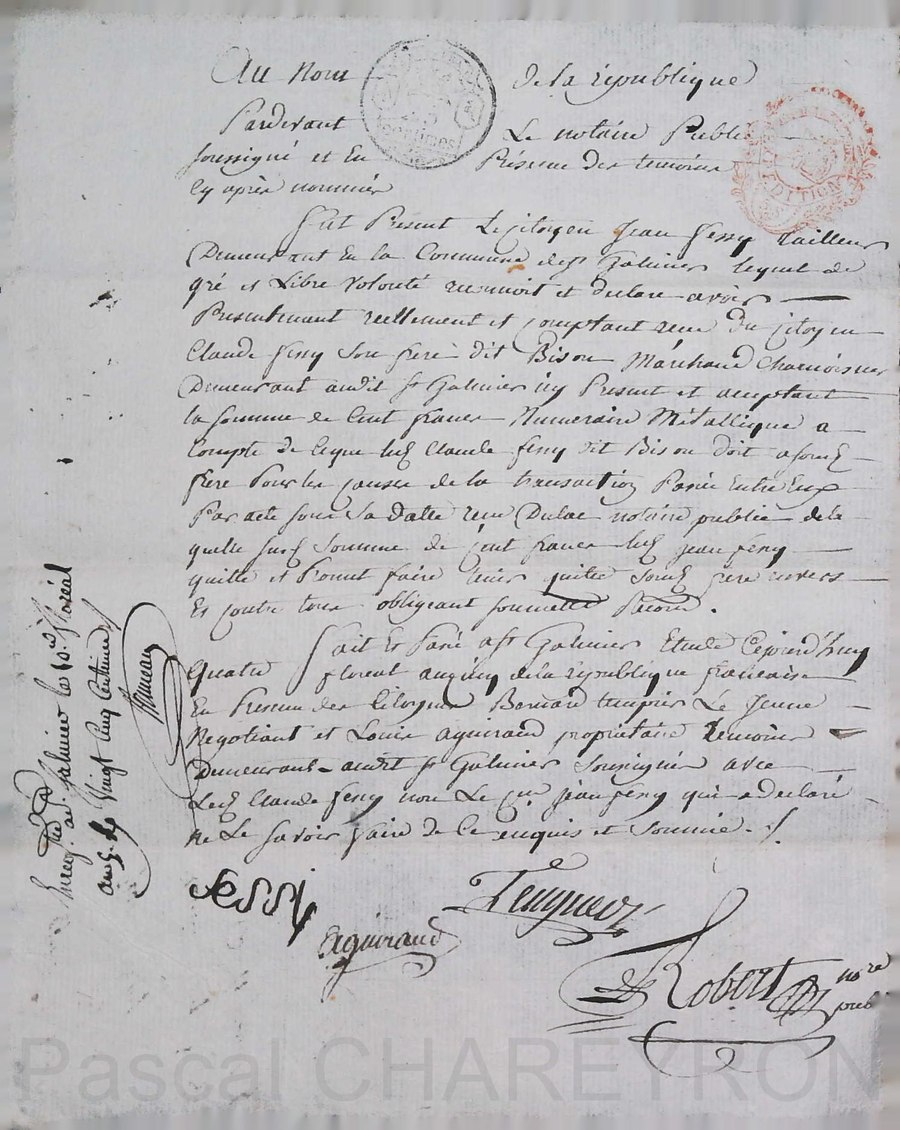 Au nom de la république
Pardevant Le notaire Public
soussigné et En Présence des temoins
Cy après nommés
fut Present Le Citoyen Jean fessy tailleur
Demeurant En La Commune de st Galmier lequel de
gré et Libre volonté reconnoit et declare avoir
Presentement reellement et comptant receu du citoyen
Claude fessy Son frere dit Bison Marchand Chamoiseur
Demeurant audit st Galmier icy Present et acceptant
la somme de Cent francs Numeraire Métallique a
Compte de Ceque led Claude fessy dit Bison doit a sond
frere Pour les causes de la transaction Passée Entre Eux
Par acte sous Sa datte receu Dulac notaire public de la
quelle susd Somme de cent francs led Jean fessy
quitte et Promet faire tenir quitte sond frere envers
Et contre tous obligeant soumettant
Fait Et Passé a st Galmier Etude Cejourd'huy
quatre floreal an cinq de la république francaise
En Presence des Citoyens Bernard tempier Le Jeune
Negotiant et Louis aguiraud propriétaire temoins
Demeurant audit st Galmier Soussignés avec
Led Claude fessy non Le cn Jean fessy qui a declaré
ne Le savoir faire de Ce enquis et Sommé ./.
fessi
aguiraud
Robert
nore
pub
Enreg. à St Galmier le floréal
an 5. Rs vingt cinq Centimes
centimes
Pascal CHAREYRON